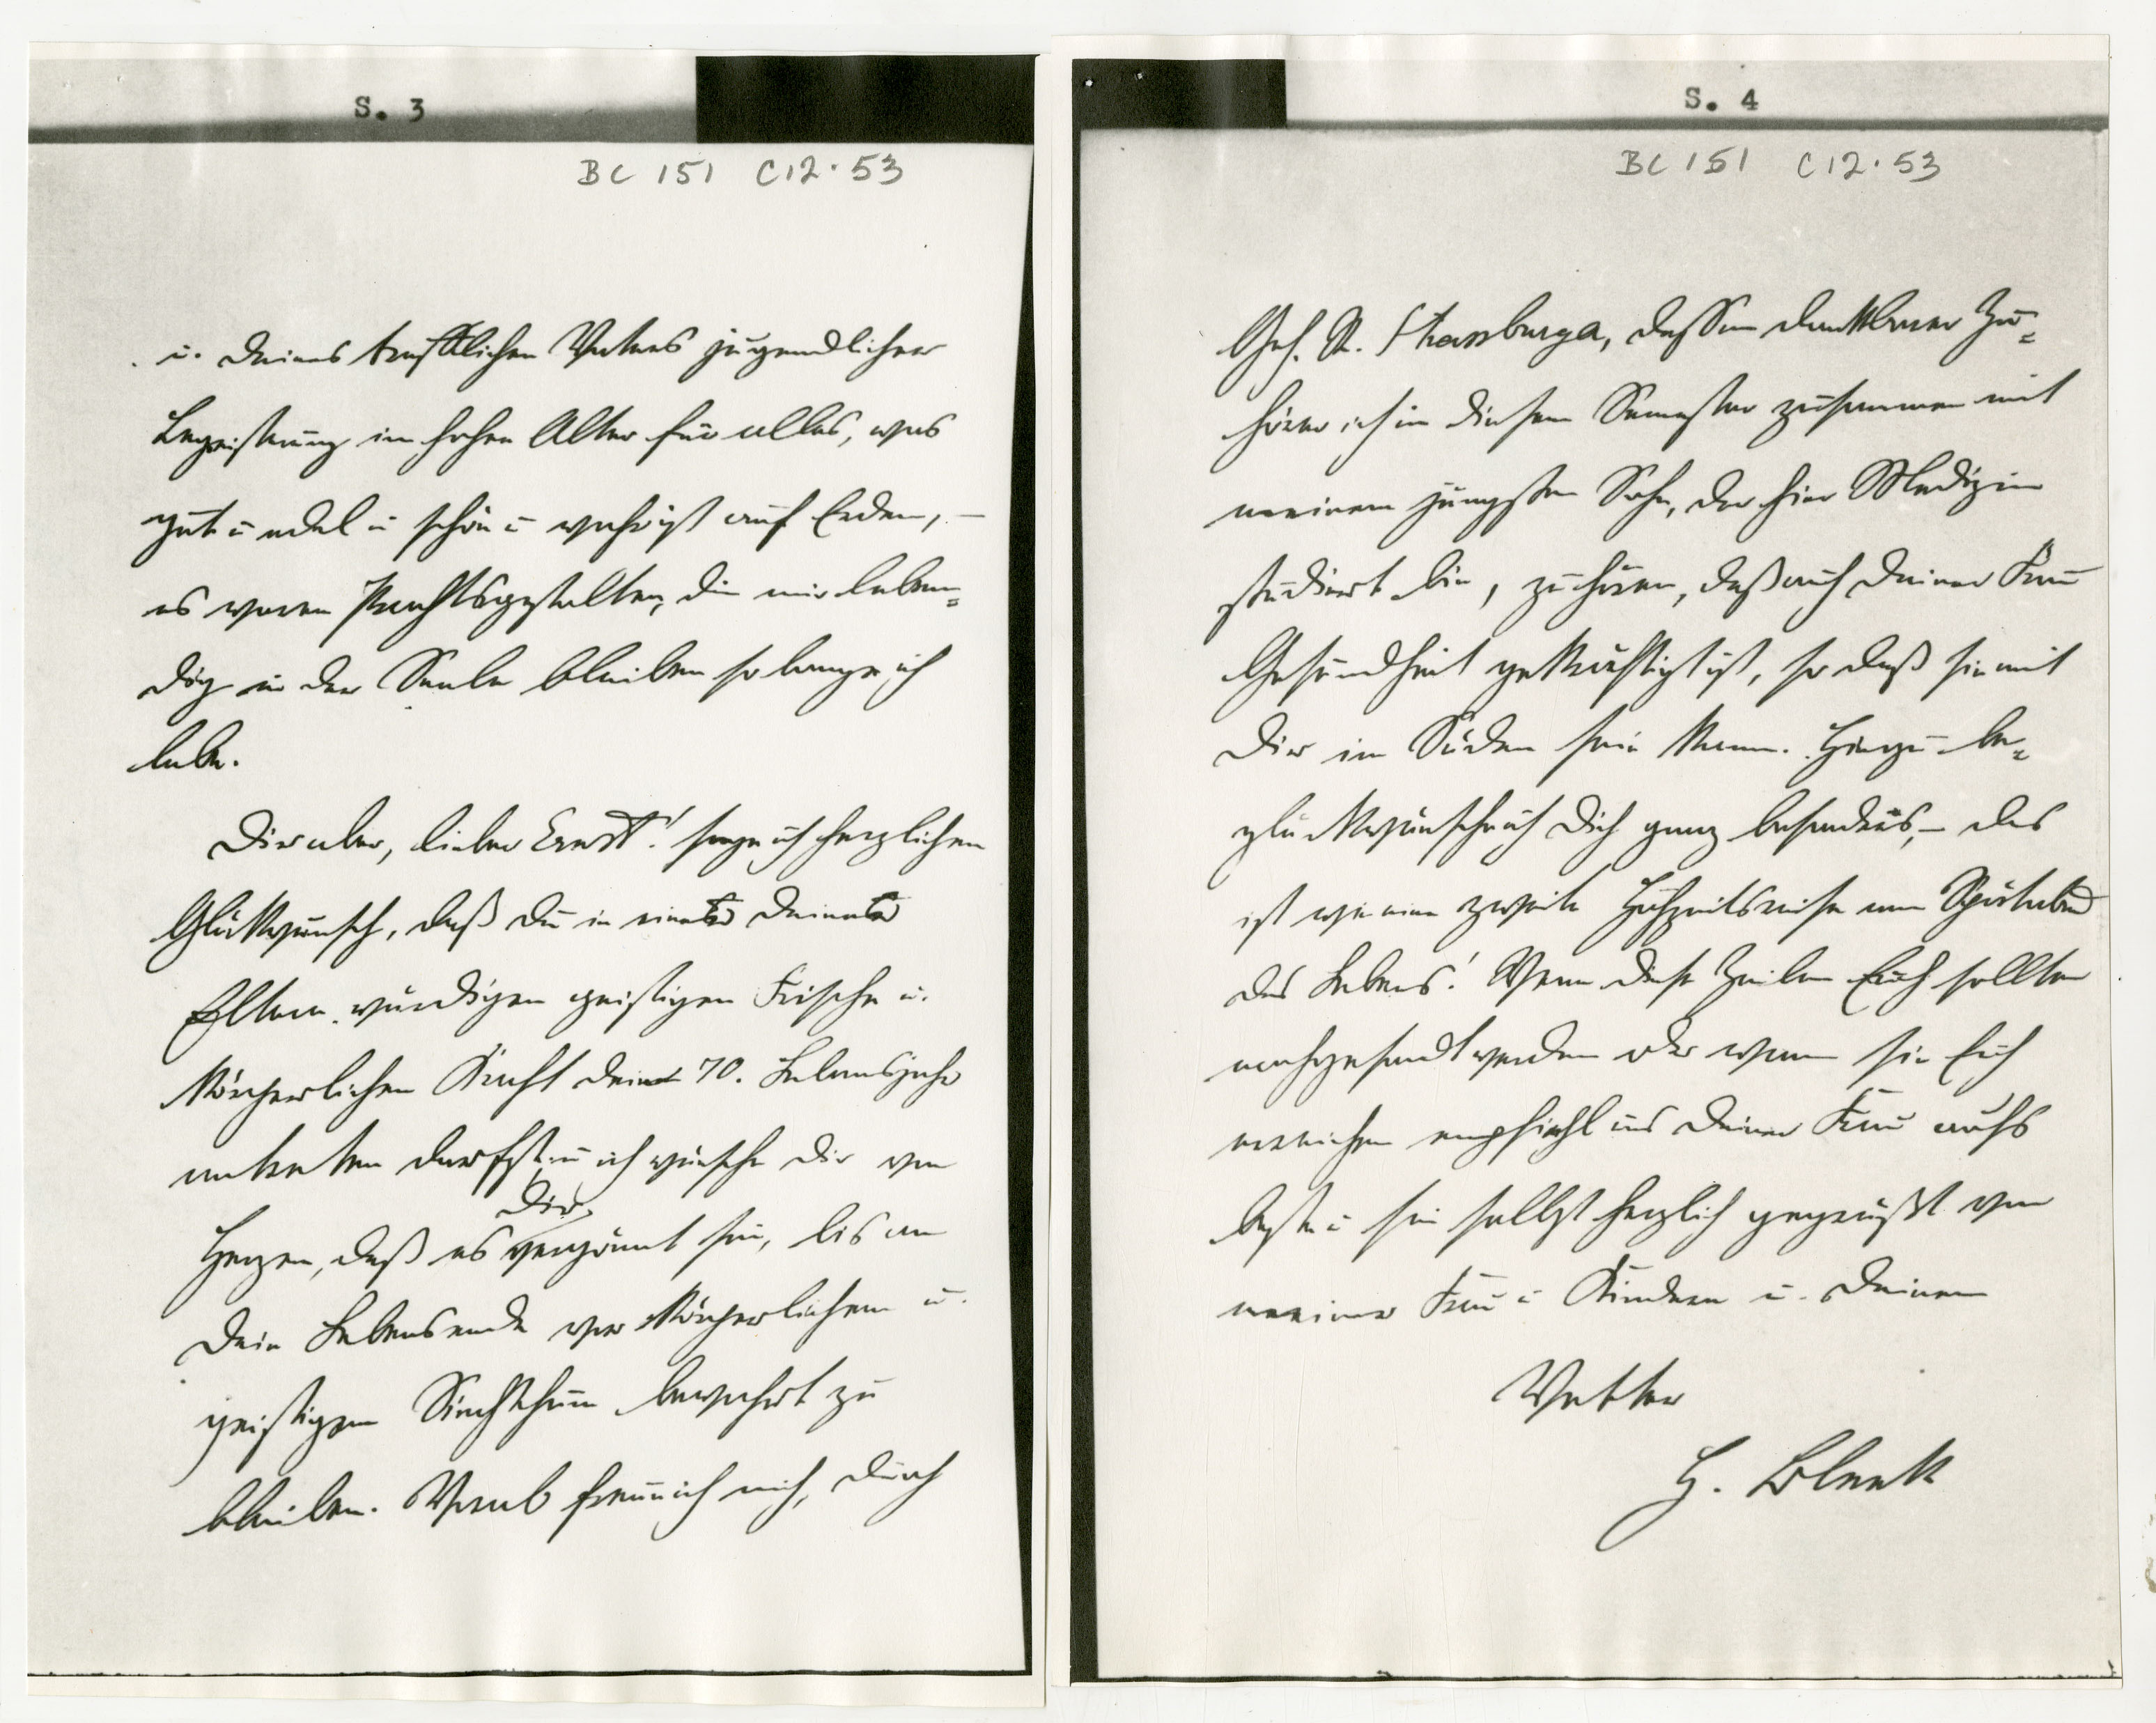 S. 3
BC 151 C12.53
u. Deines trefflichen Vaters jugendlicher
Begeisterung im hohen Alter für alles, was
gut u edel u schön u wahr ist auf Erden, –
es waren Prachtsgestalten, die mir leben=
dig in der Seele bleiben so lange ich
lebe.
Dir aber, lieber Ernst! sage ich herzlichen
Glückwunsch, daß Du in einer Deiner
Eltern würdigen geistigen Frische u.
körperlichen Kraft Dein 70. Lebensjahr
antreten darfst u ich wünsche Dir von
Dir
Herzen, daß es vergönnt sei, bis an
Dein Lebensende vor körperlichem u.
geistigem Siechthum bewahrt zu
bleiben. Vorab freue ich mich, durch
S. 4
BC 151 C12.53
Geh. R. Strassburga, dessen dankbarer Zu=
hörer ich in diesem Semester zusammen mit
meinem jüngsten Sohn, der hier Medizin
studiert bin, zu hören, daß auch Deiner Frau
Gesundheit gekräftigt ist, so daß sie mit
Dir im Süden sein kann. Hiezu be=
glückwünsche ich Dich ganz besonders, – das
ist wie eine zweite Hochzeitsreise am Spätabend
des Lebens! Wenn diese Zeilen Euch sollten
nachgesandt werden oder wenn sie Euch
erreichen empfiehl uns Deiner Frau aufs
beste u sei selbst herzlich gegrüßt von
meiner Frau u Kindern u. Deinem
Vetter
H. Bleek